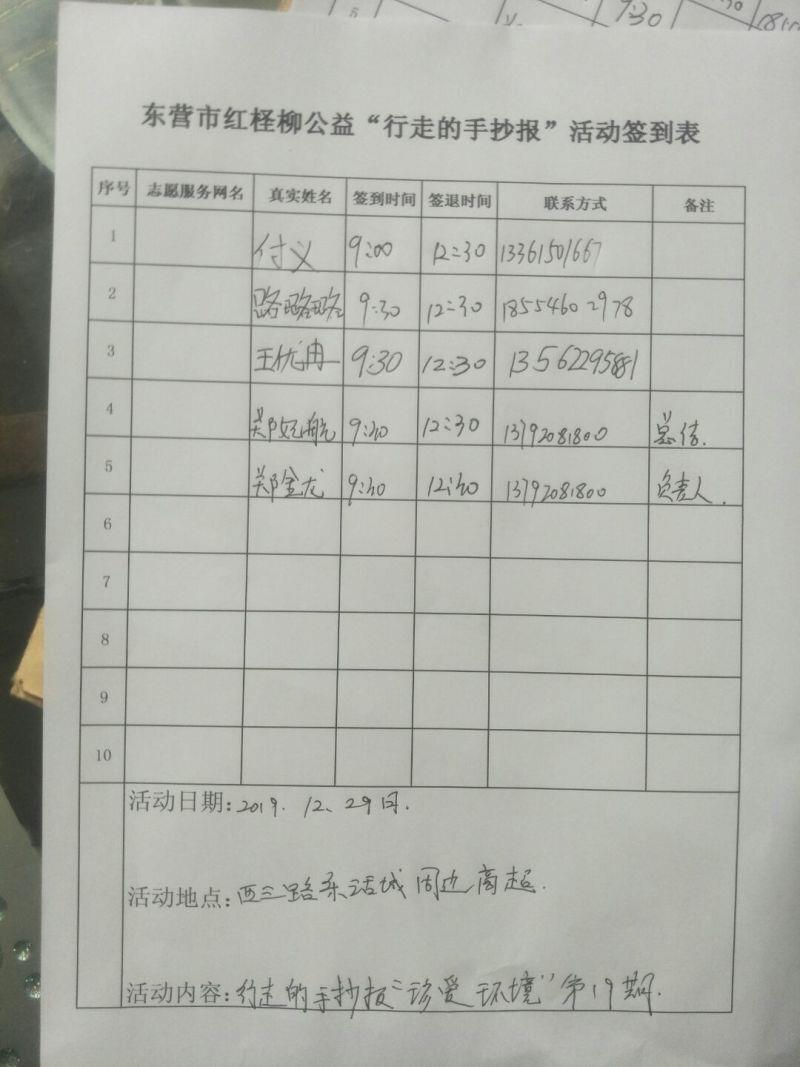 东营市红柽柳公益“行走的手抄报”活动签到表
序号 志愿服务网名 真实姓名 签到时间 签退时间 联系方式 备注
1 付义 9:00 12:30 13361501667
2 路璐璐 9:30 12:30 18554602978
3 王优冉 9:30 12:30 13562295881
4 郑妃航 9:20 12:30 13792081800 总结.
5 郑金龙 9:20 12:40 13792081800 负责人.
6
7
8
9
10
活动日期:2019.12.29日.
活动地点:西三路乐活城周边商超.
活动内容:行走的手抄报“珍爱环境”第19期.